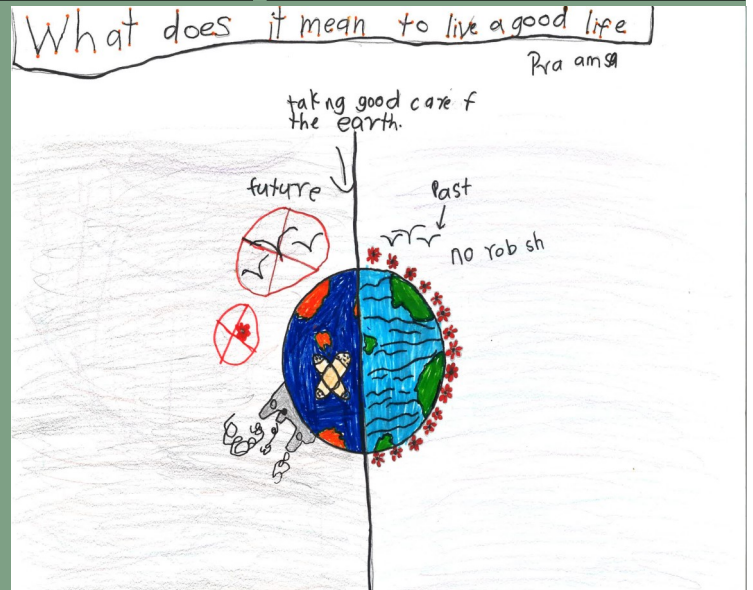 What does it mean to live a good life
Pra amsa
takng good care f
the earth.
future
Past
no robsh